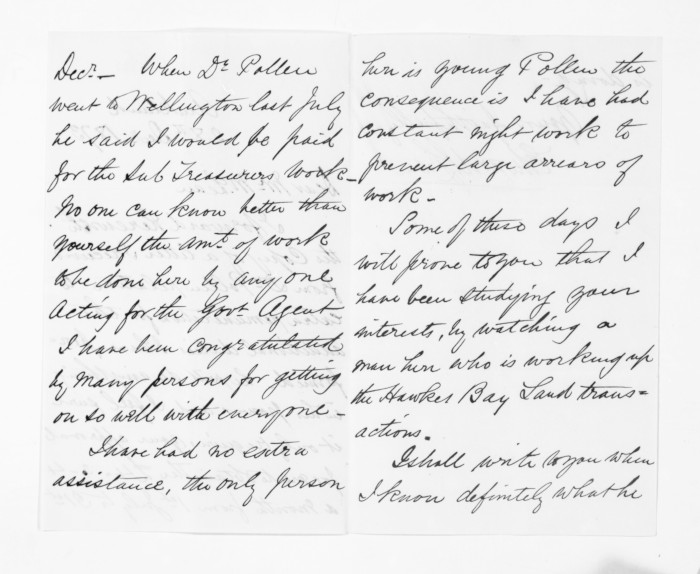 Decr.— When Dr. Pollen
went to Wellington last July
he said I would be paid
for the Sub Treasurers work—
No one can know better than
yourself the amt. of work
to be done here by any one
acting for the Govt. Agent
I have been congratulated
by many persons for getting
on so well with everyone—
I have had no extra
assistance, the only person
here is young Pollen the
consequence is I have had
constant night work to
prevent large arrears of
work—
Some of these days I
will prove to you that I
have been studying your
interests, by watching a
man here who is working up
the Hawkes Bay Land trans=
actions.
I shall write to you when
I know definitely what he